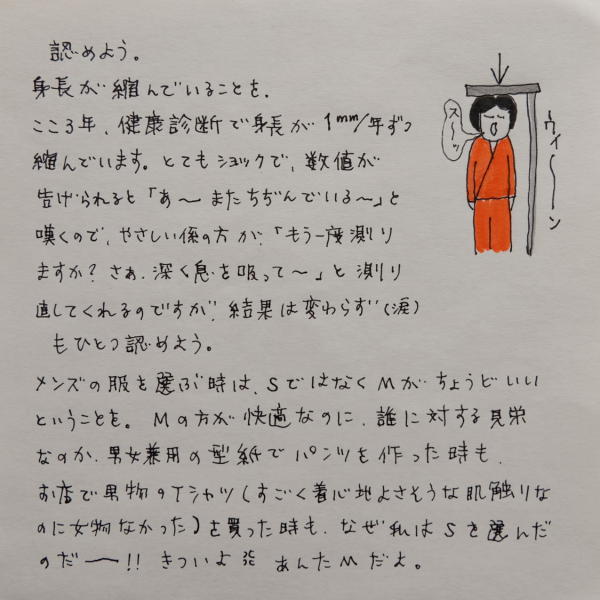 認めよう。
身長が縮んでいることを.
ここ3年、健康診断で身長が1mm/年ずつ
縮んでいます。とてもショックで、数値が
告げられると「あ〜またちぢんでいる〜」と
嘆くので、やさしい係の方が、「もう一度測り
ますか?さぁ、深く息を吸って〜」と測り
直してくれるのですが、結果は変わらず(涙)
もひとつ認めよう。
メンズの服を選ぶ時は、SではなくMがちょうどいい
ということを。Mの方が快適なのに、誰に対する見栄
なのか、男女兼用の型紙でパンツを作った時も、
お店で男物のTシャツ(すごく着心地よさそうな肌触りな
のに女物なかった)を買った時も、なぜ私はSを選んだ
のだ〜!!きついよ あんたMだよ。
ス〜ッ
ウィ〜〜ン